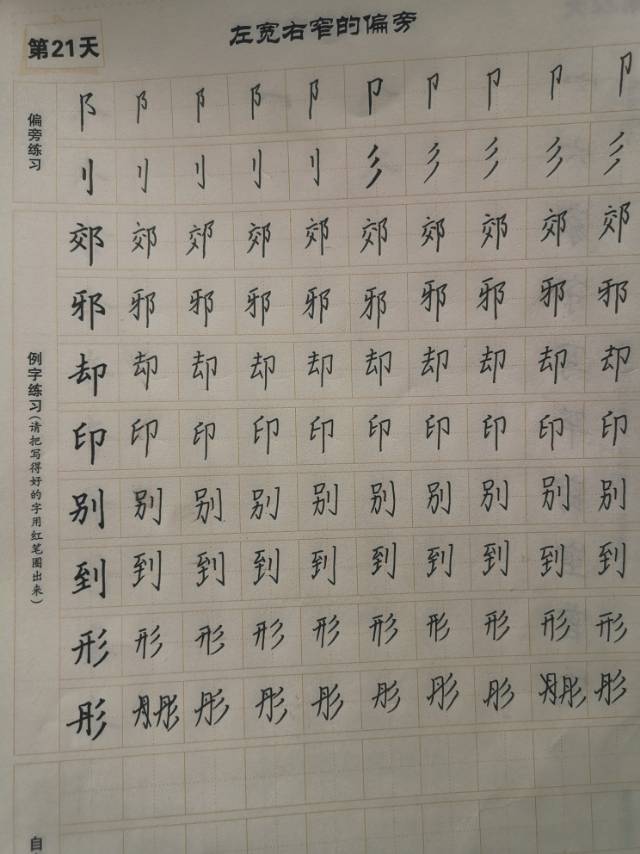 第21天
左宽右窄的偏旁
偏旁练习
阝阝阝阝阝卩卩卩卩卩
刂刂刂刂刂彡彡彡彡彡
例字练习(请把写得好的字用红笔圈出来)
郊郊郊郊郊郊郊郊郊郊
邪邪邪邪邪邪邪邪邪邪
却却却却却却却却却却
印印印印印印印印印印
别别别别别别别别别别
到到到到到到到到到到
形形形形形形形形形形
彤彤彤彤彤彤彤彤彤彤
自